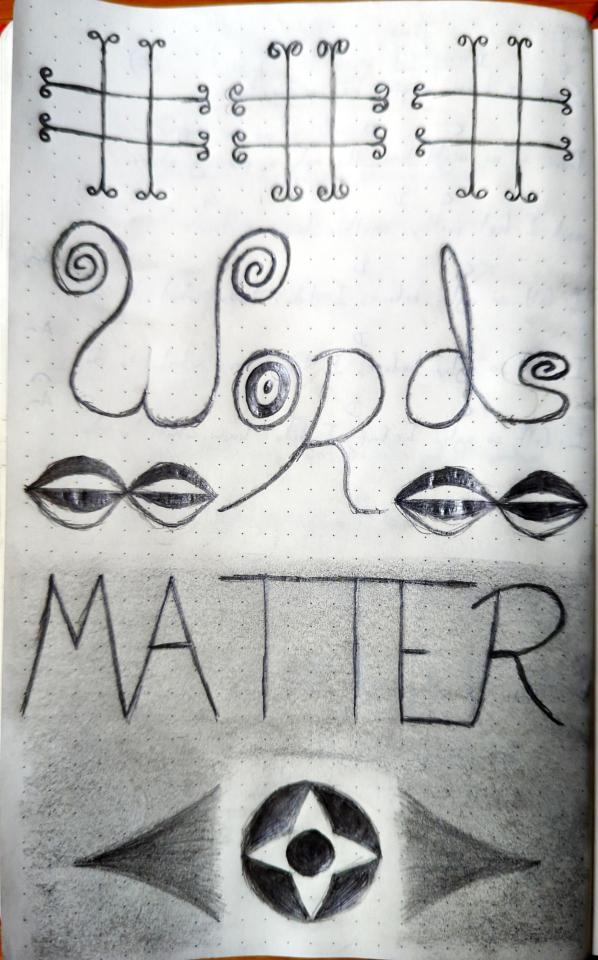 WoRds
MATTER